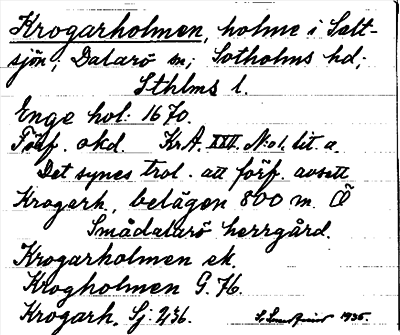 Krogarholmen, holme i Salt-
sjön; Dalarö sn; Sotholms hd;
Sthlms l.
Enge hol: 1670.
Förf. okd. KrA. XXV. No1. lit. a.
Det synes trol. att förf. avsett
Krogarh. belägen 800 m. Ö
Smådalarö herrgård.
Krogarholmen ek.
Krogholmen G. 76.
Krogarh. Sj: 236. 1935.